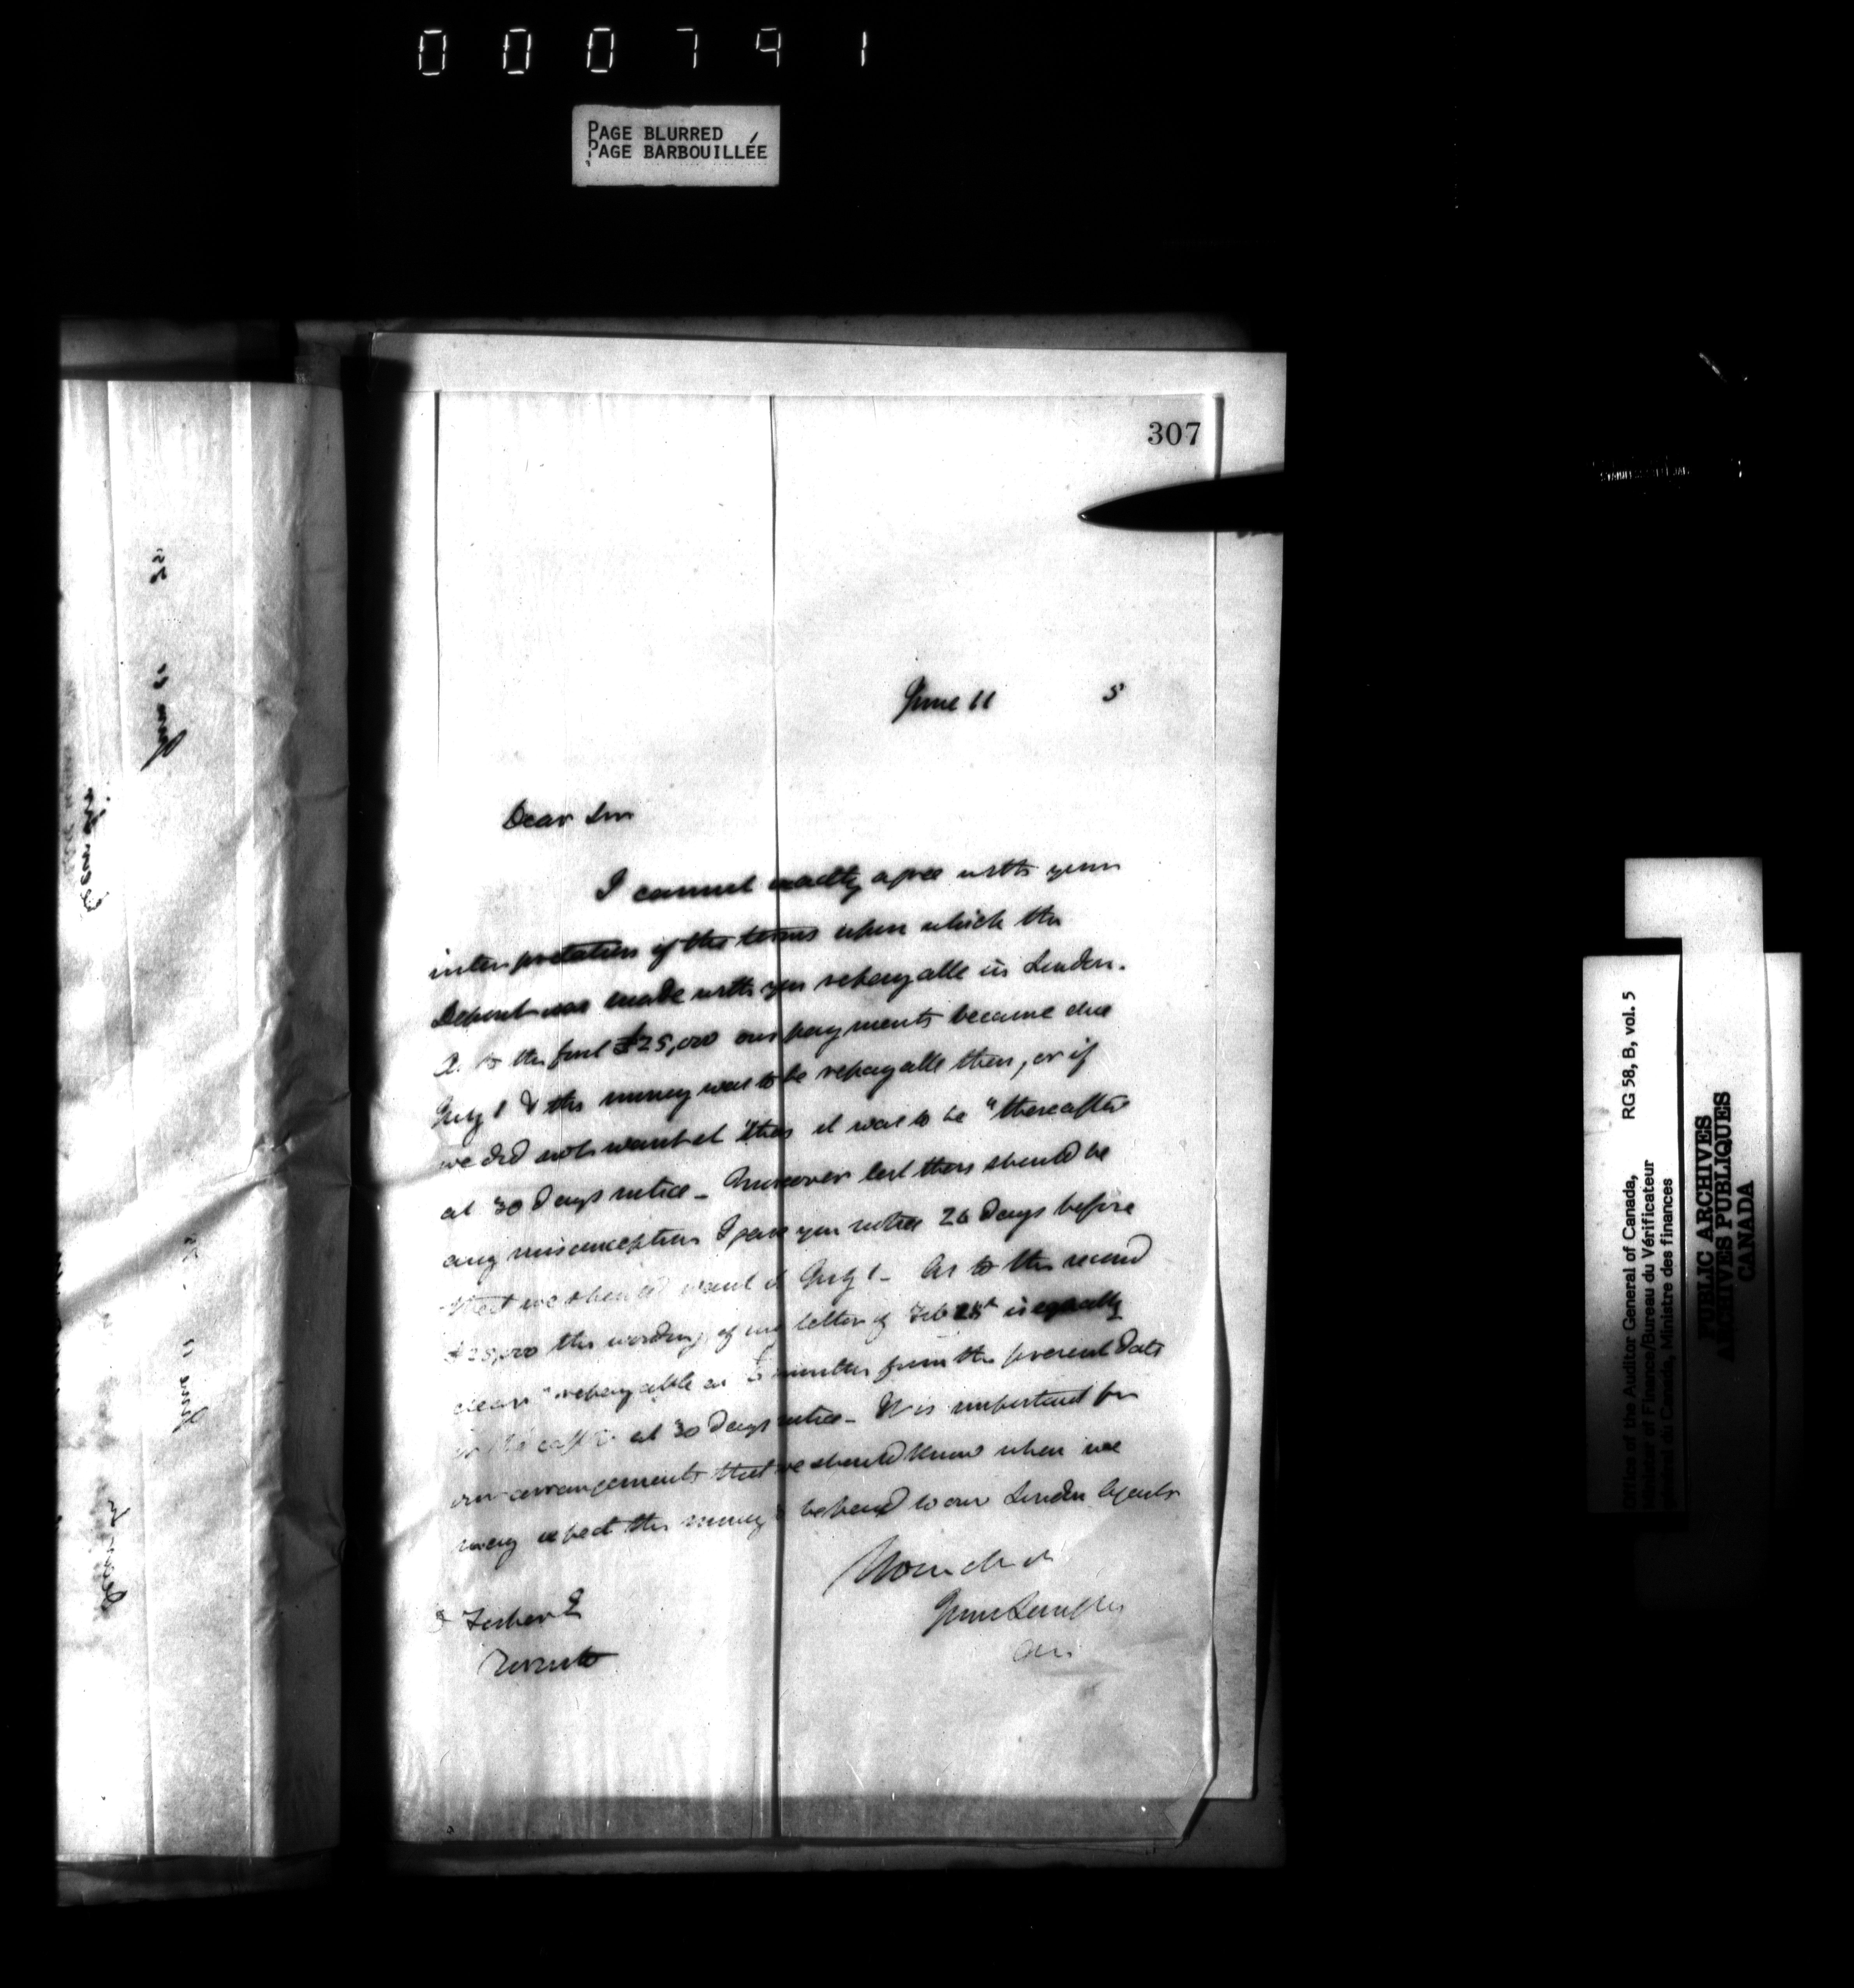 000791
PAGE BLURRED
PAGE BARBOUILLÉE
307
June 11 5
Dear Sir
I cannot exactly agree with your
interpretation of the terms upon which the
Deposit was made with you repayable in London.
As to the first £25,000 our payments became due
July 1 & the money was to be repayable then, or if
we did not want it then it was to be "thereafter
at 30 days notice - Moreover lest there should be
any misconception I gave you notice 26 days before
that we should want it July 1 - As to the second
£25,000 the wording of my letter of Feb 28th is equally
clear "repayable in months from the present date
or at 30 days notice - It is important for
our arrangements that we should know when we
may expect the money to be paid to our London Agents
Toronto
Offices of the Auditor General of Canada, RG 58, B, vol. 5
Minister of Finance/Bureau du Vérificateur
général du Canada, Ministre des finances
PUBLIC ARCHIVES
ARCHIVES PUBLIQUES
CANADA